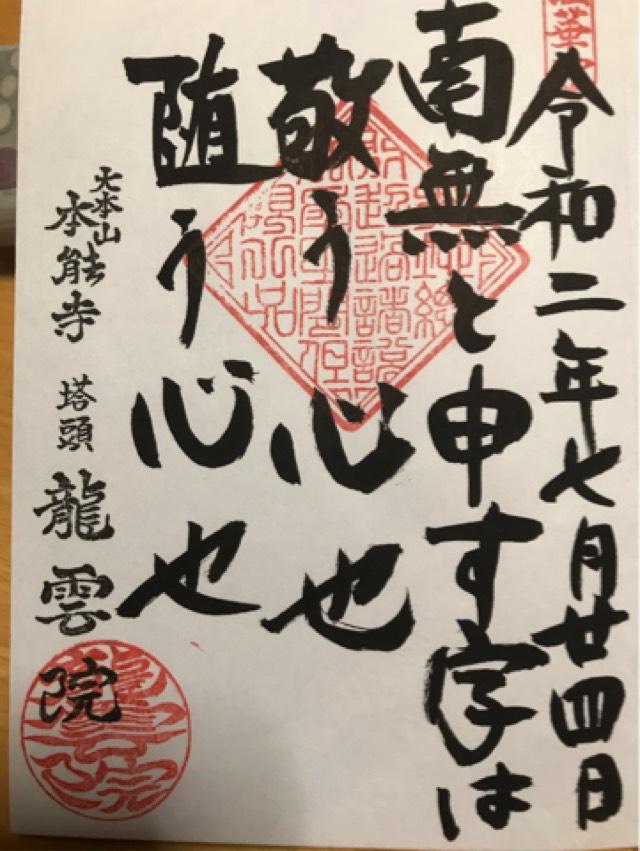 令和二年七月廿四日
南無と申す字は
敬う心也
随う心也
大本山
本能寺 塔頭 龍雲院